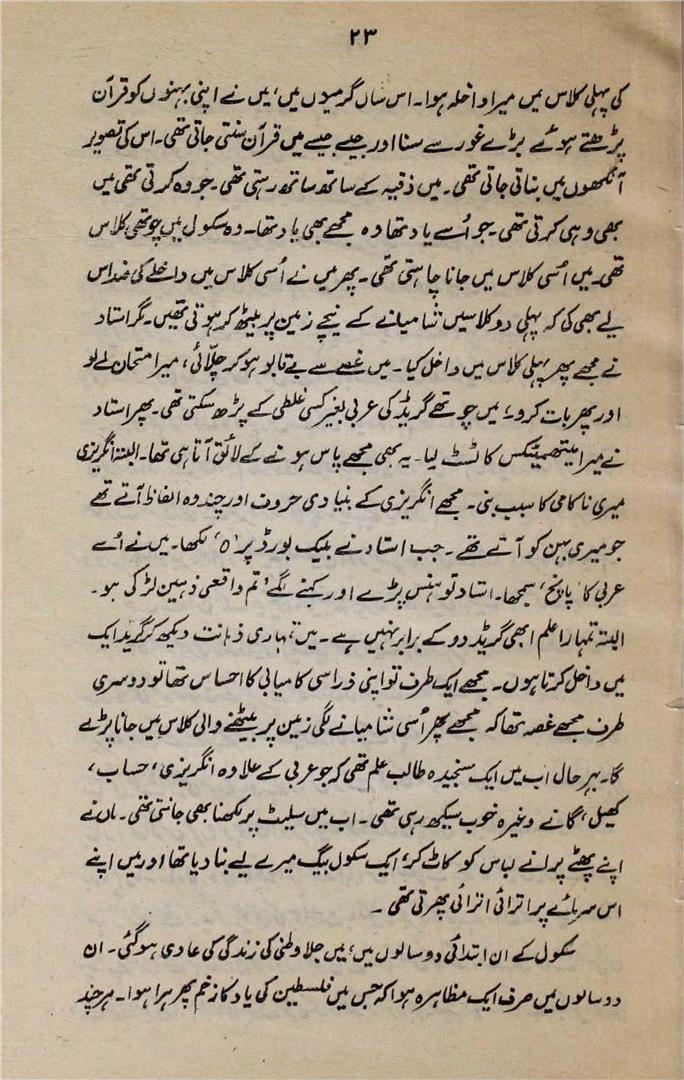 ۲۳
کی پہلی کلاس میں میرا داخلہ ہوا۔ اس سال گرمیوں میں، میں نے اپنی بہنوں کو قرآن
پڑھتے ہوئے بڑے غور سے سنا اور جیسے جیسے میں قرآن سنتی جاتی تھی۔ اس کی تصویر
آنکھوں میں بناتی جاتی تھی۔ میں ذقیہ کے ساتھ ساتھ رہتی تھی۔ جو وہ کرتی تھی میں
بھی وہی کرتی تھی۔ جو اُسے یاد تھا وہ مجھے بھی یاد تھا۔ وہ سکول میں چوتھی کلاس
تھی۔ میں اُسی کلاس میں جانا چاہتی تھی۔ پھر میں نے اُسی کلاس میں داخلے کی ضد اس
لیے بھی کی کہ پہلی دو کلاسیں شامیانے کے نیچے زمین پر بیٹھ کر ہوتی تھیں۔ مگر استاد
نے مجھے پھر پہلی کلاس میں داخل کیا۔ میں غصے سے بے قابو ہو کر چلّائی، میرا متحان لے لو
اور پھر بات کرو۔ میں چوتھے گریڈ کی عربی بغیر کسی غلطی کے پڑھ سکتی تھی۔ پھر استاد
نے میرا میتھمیٹکس کا ٹسٹ لیا۔ یہ بھی مجھے پاس ہونے کے لائق آتا ہی تھا۔ البتہ انگریزی
میری ناکامی کا سبب بنی۔ مجھے انگریزی کے بنیادی حروف اور چند وہ الفاظ آتے تھے
جو میری بہن کو آتے تھے۔ جب استاد نے بلیک بورڈ پر 'o' لکھا۔ میں نے اُسے
عربی کا 'پانچ' سمجھا۔ استاد تو ہنس پڑے اور کہنے لگے 'تم واقعی ذہین لڑکی ہو۔
البتہ تمہارا علم ابھی گریڈ دو کے برابر نہیں ہے۔ میں تمہاری ذہانت دیکھ کر گریڈ ایک
میں داخل کرتا ہوں۔ مجھے ایک طرف تو اپنی ذرا سی کامیابی کا احساس تھا تو دوسری
طرف مجھے غصہ تھا کہ مجھے پھر اُسی شامیانے لگی زمین پر بیٹھنے والی کلاس میں جانا پڑے
گا۔ بہر حال اب میں ایک سنجیدہ طالب علم تھی کہ جو عربی کے علاوہ انگریزی، حساب،
کھیل، گانے وغیرہ خوب سیکھ رہی تھی۔ اب میں سلیٹ پر لکھنا بھی جانتی تھی۔ ماں نے
اپنے پھٹے پرانے لباس کو کاٹ کر، ایک سکول بیگ میرے لیے بنا دیا تھا اور میں اپنے
اس سرمائے پر اترائی اترائی پھرتی تھی۔
سکول کے ان ابتدائی دو سالوں میں، میں جلاوطنی کی زندگی کی عادی ہو گئی۔ ان
دو سالوں میں صرف ایک مظاہرہ ہوا کہ جس میں فلسطین کی یاد کا زخم پھر ہرا ہوا۔ ہر چند